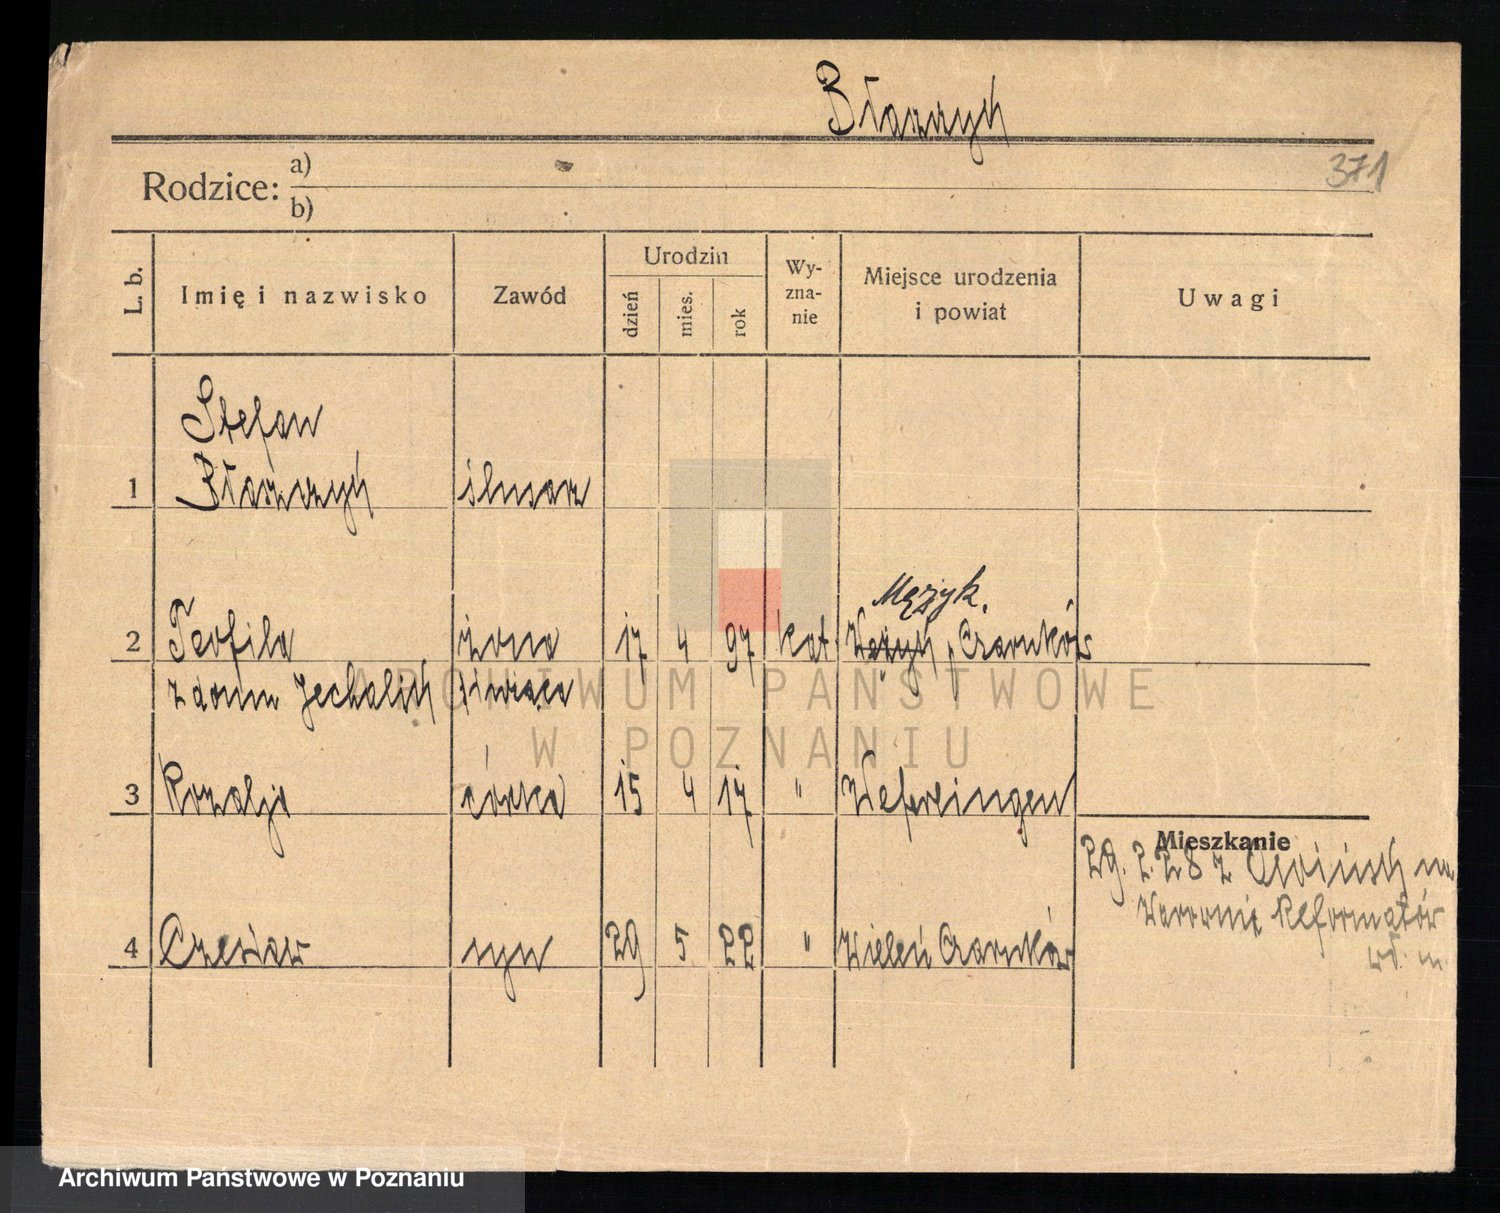 Błaszyk
371
Rodzice: a)
b)
L. b.
Imię i nazwisko
Zawód
Urodzin
dzień
mies.
rok
Wy-
zna-
nie
Miejsce urodzenia
i powiat
Uwagi
Stefan
1 Błaszyk ślusarz
Mężyk.
2 Teofila żona 17 4 97 kat , Czarnków
z domu Jechalik
3 Rozalja córka 15 4 17 " Weferlingen
Mieszkanie
29. 2. 28 z
Reformatów
4 Czesław syn 29 5 22 " Wieleń Czarnków
ARCHIWUM PAŃSTWOWE
W POZNANIU
Archiwum Państwowe w Poznaniu